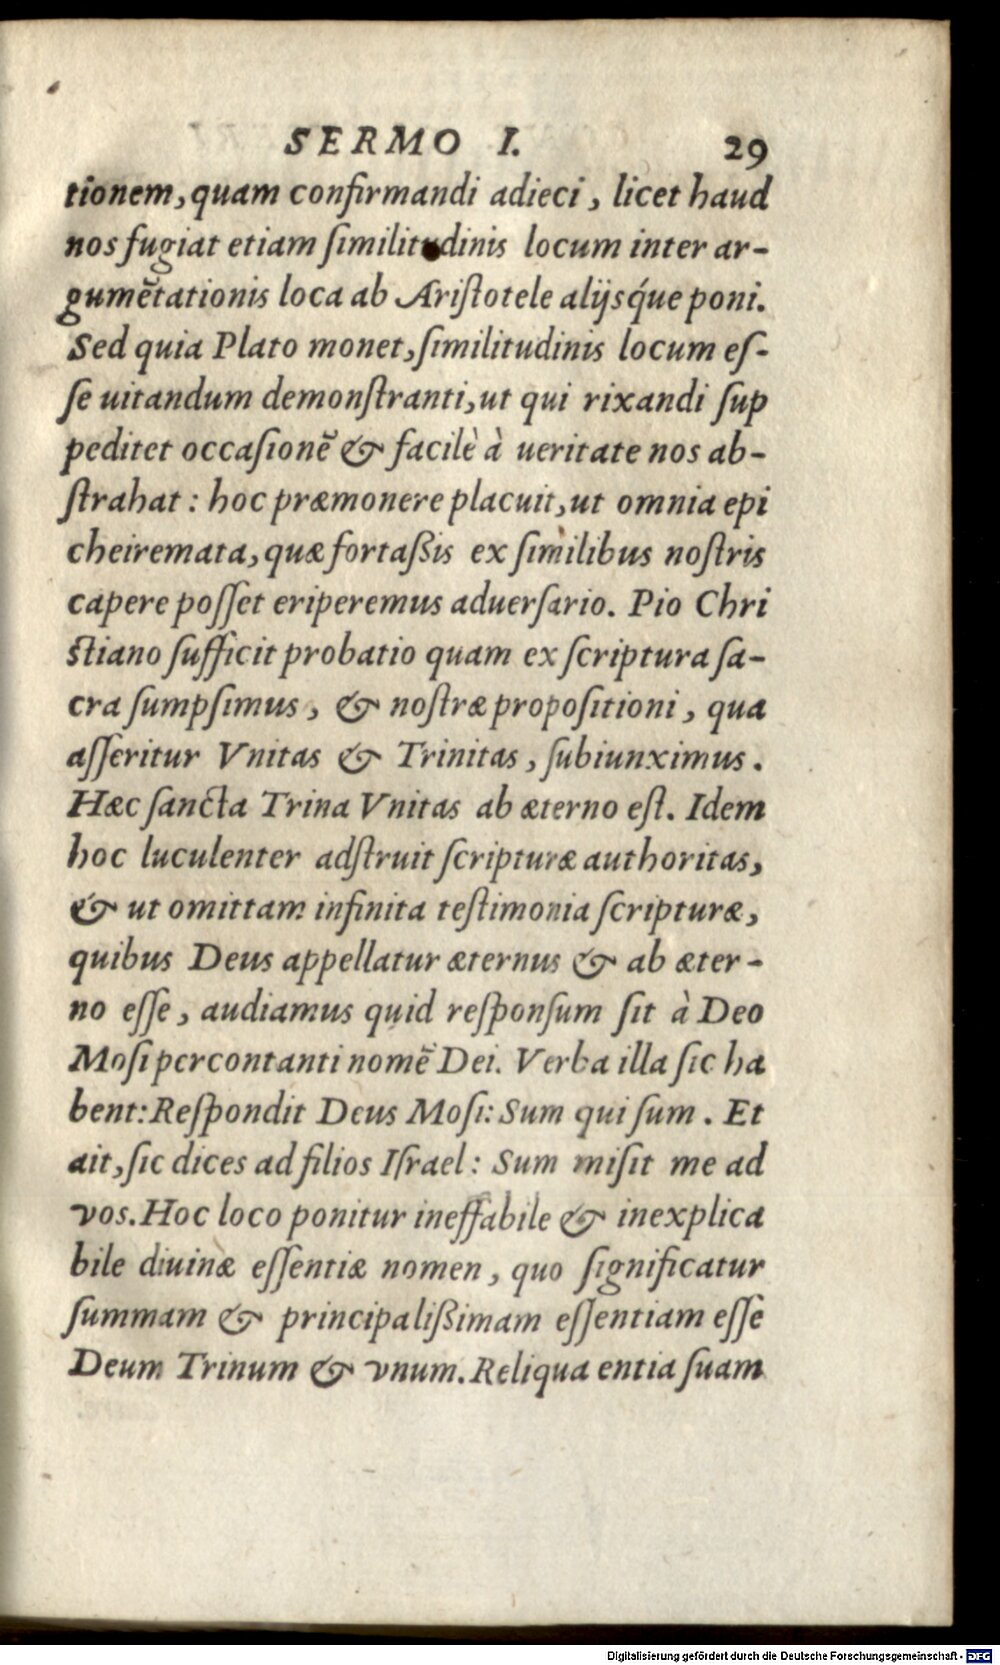 SERMO I. 29
tionem, quam confirmandi adieci, licet haud
nos fugiat etiam ſimilitudinis locum inter ar-
gumẽtationis loca ab Ariſtotele alijsq́ue poni.
Sed quia Plato monet, ſimilitudinis locum eſ-
ſe uitandum demonſtranti, ut qui rixandi ſup
peditet occaſionẽ & facilè à ueritate nos ab-
ſtrahat: hoc præmonere placuit, ut omnia epi
cheiremata, quæ fortaßis ex ſimilibus noſtris
capere poſſet eriperemus aduerſario. Pio Chri
ſtiano ſufficit probatio quam ex ſcriptura ſa-
cra ſumpſimus, & noſtræ propoſitioni, qua
aſſeritur Vnitas & Trinitas, ſubiunximus.
Hæc ſancta Trina Vnitas ab æterno eſt. Idem
hoc luculenter adſtruit ſcripturæ authoritas,
& ut omittam infinita teſtimonia ſcripturæ,
quibus Deus appellatur æternus & ab æter-
no eſſe, audiamus quid reſponſum ſit à Deo
Moſi percontanti nomẽ Dei. Verba illa ſic ha
bent: Reſpondit Deus Moſi: Sum qui ſum. Et
ait, ſic dices ad filios Iſrael: Sum miſit me ad
vos. Hoc loco ponitur ineffabile & inexplica
bile diuinæ eſſentiæ nomen, quo ſignificatur
ſummam & principalißimam eſſentiam eſſe
Deum Trinum & vnum. Reliqua entia ſuam
Digitalisierung gefördert durch die Deutsche Forschungsgemeinschaft - DFG